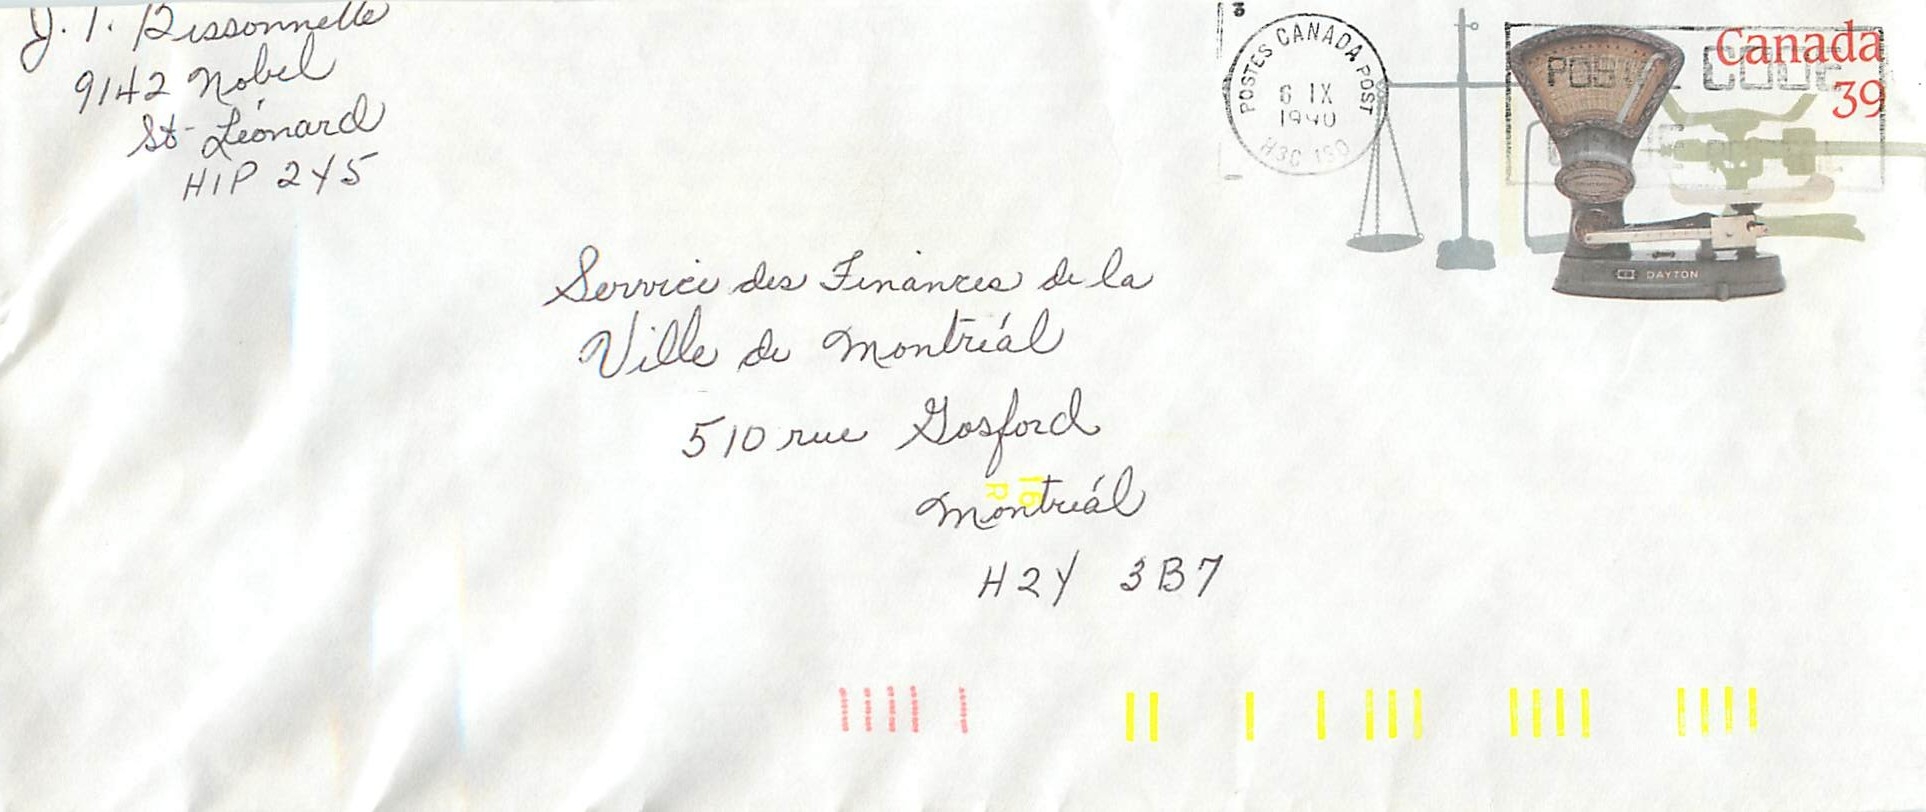 J. P. Bissonnette
9142 Nobel
St-Léonard
H1P 2Y5
POSTES CANADA POST
6 IX
1990
H3C 1S0
POSTAL CODE
Canada
39
DAYTON
Service des Finances de la
Ville de Montréal
510 rue Gosford
Montréal
H2Y 3B7
16
R